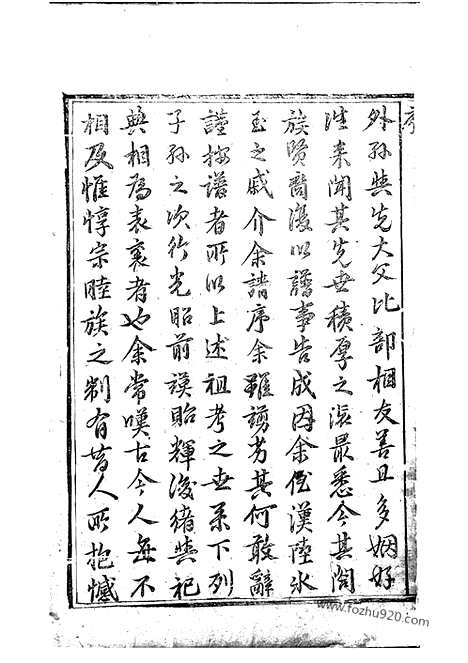 序
外孫與先大父比部相友善且多姻好
往来聞其先世積厚之深最悉今其閤
族賢裔復以譜事告成因余侄漢陸氷
玉之戚介余譜序余雖譾劣其何敢辭
謹按譜者所以上述祖考之世系下列
子孫之次行光昭前謨貽輝後緒與祀
典相為表裏者也余常嘆古今人無不
相及惟惇宗睦族之制有昔人所抱憾
www.fozhu920.com